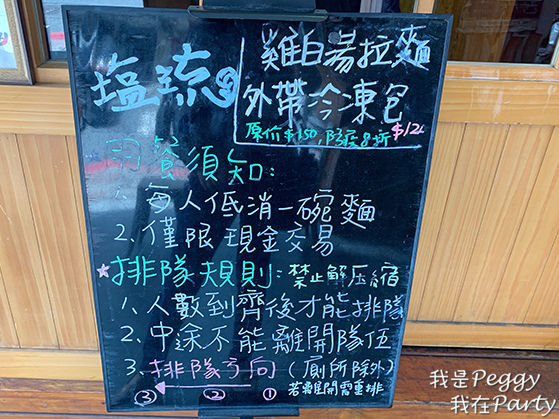 塩琉
雞白湯拉麵
外帶冷凍包
原价$150,防疫8折 $120
用餐須知:
1. 每人低消一碗麵
2. 僅限現金交易
★排隊規則:禁止解壓縮
1. 人數到齊後才能排隊
2. 中途不能離開隊伍
3. 排隊方向(廁所除外)
③ ② ① 若離開需重排
我是Peggy
我在Party